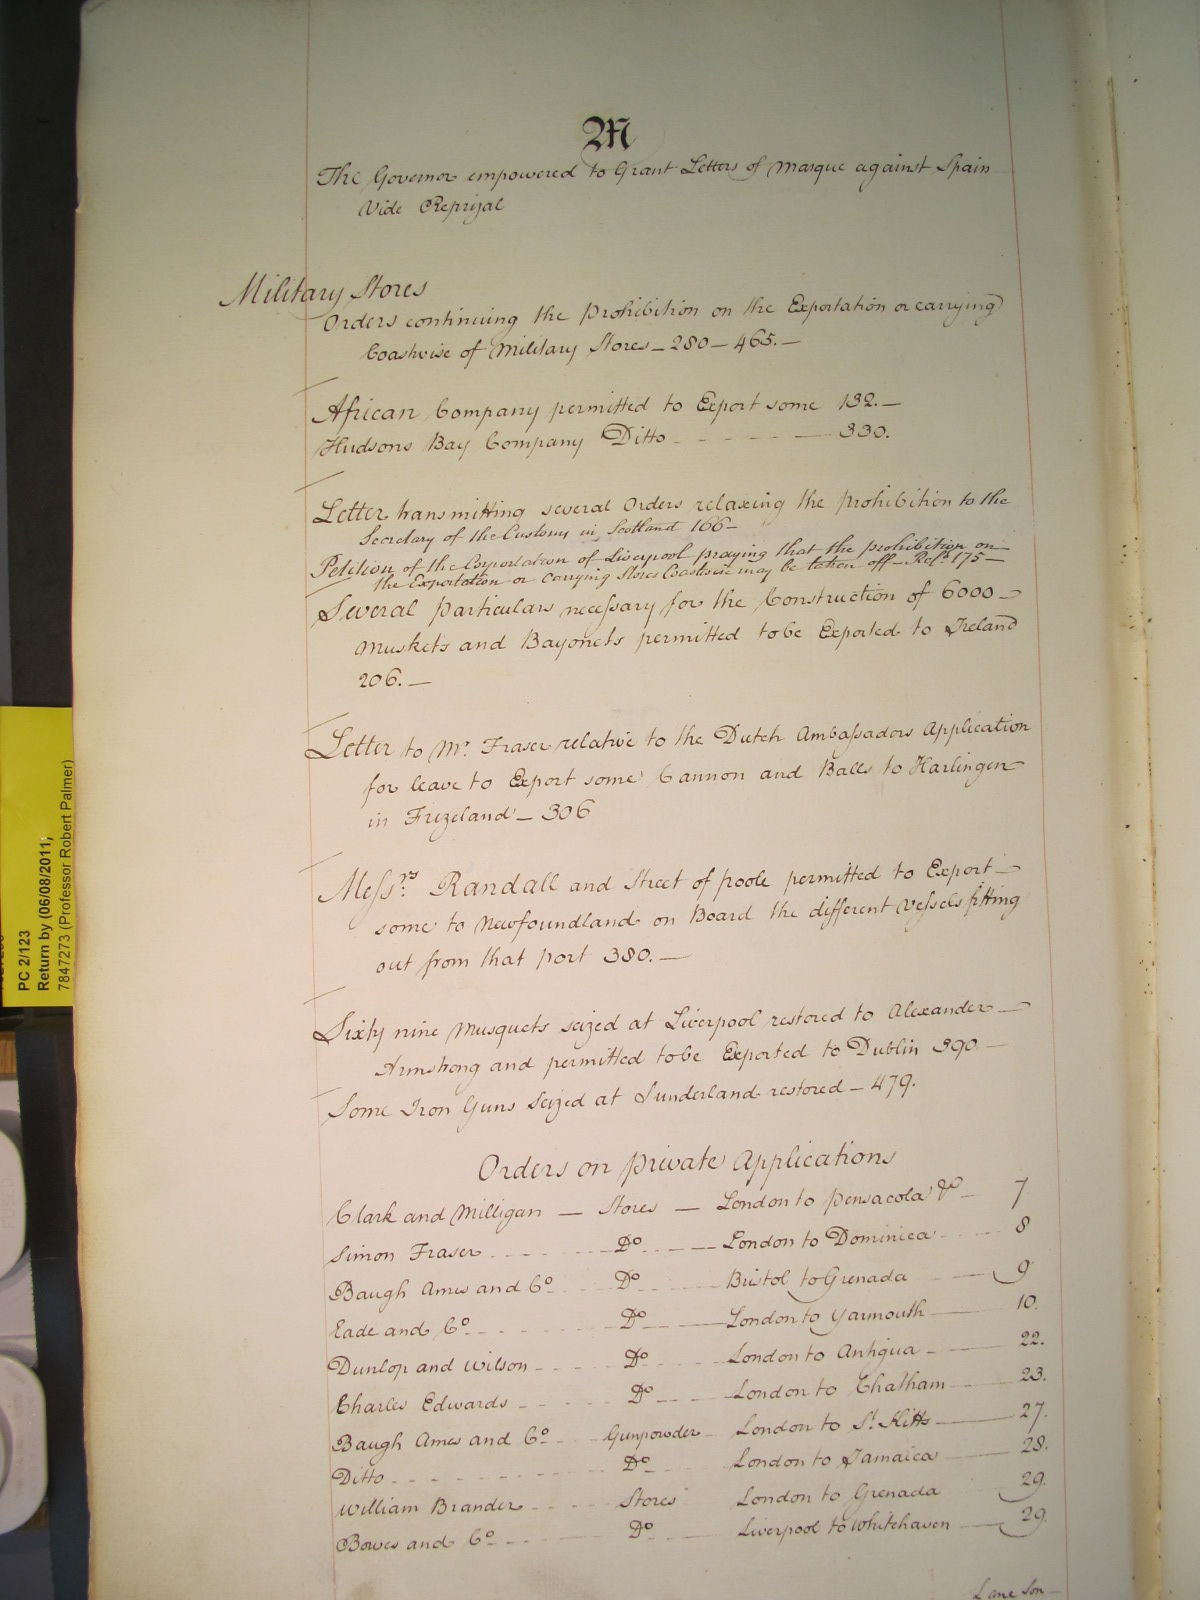 M
The Governor empowered to Grant Letters of Marque against Spain
Vide Reprizal
Military Stores
Orders continuing the Prohibition on the Exportation or carrying
Coastwise of Military Stores — 280 — 465. —
African Company permitted to Export some 132. —
Hudsons Bay Company Ditto - - - - - — 330.
Letter transmitting several Orders relaxing the prohibition to the
Secretary of the Customs in Scotland 166 —
Petition of the Corporation of Liverpool praying that the prohibition on —
the Exportation or carrying Stores Coastwise may be taken off — Refd. 175 —
Several Particulars necessary for the Construction of 6000 —
Muskets and Bayonets permitted to be Exported to Ireland
206. —
Letter to Mr. Fraser relative to the Dutch Ambassadors Application
for leave to Export some Cannon and Balls to Harlingen
in Frizeland — 306
Messrs. Randall and Street of poole permitted to Export —
some to Newfoundland on Board the different Vessels fitting
out from that port 380. —
Sixty nine Musquets seized at Liverpool restored to Alexander —
Armstrong and permitted to be Exported to Dublin 390 —
Some Iron Guns Seized at Sunderland restored — 479.
Orders on private Applications
Clark and Milligan — Stores — London to pensacola &c — 7
Simon Fraser - - - - Do. - - — London to Dominica - - - 8
Baugh Ames and Co. - - Do. - - - Bristol to Grenada — 9
Eade and Co. - - - - Do. - - — London to Yarmouth — 10.
Dunlop and Wilson - - - Do. - - - London to Antigua - — 22.
Charles Edwards - - - - Do. - - — London to Chatham — 23.
Baugh Ames and Co. - - - Gunpowder - London to St. Kitts — 27.
Ditto - - - - - - - Do. - - - London to Jamaica — 28.
William Brander - - - Stores London to Grenada 29.
Bowes and Co. - - - - Do. - - Liverpool to Whitehaven — 29.
Lane Son —
PC 2/123
Return by (06/08/2011;
7847273 (Professor Robert Palmer)